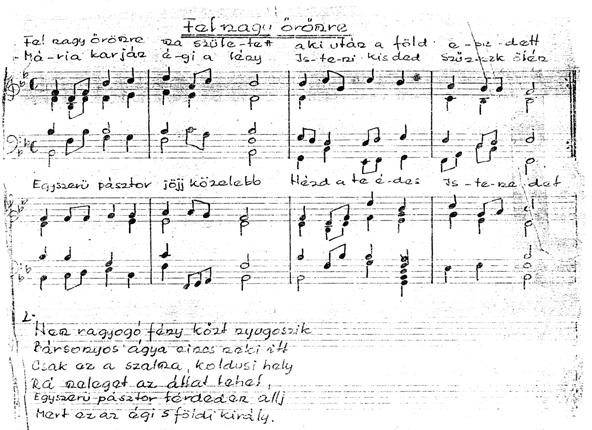 Fel nagy örömre
Fel nagy örömre ma szüle-tett aki után a föld e-pe-dett
Má-ria karján é-gi a fény Is-te-ni kisded Szűz-ecsk ölén
Egyszerü pásztor jöjj közelebb Nézd a te é-des Is-te-ne-det
2.
Nem ragyogó fény közt nyugoszik
Bársonyos ágya nincs néki itt
Csak ez a szalma, koldusi hely
Rá meleget az állat lehel,
Egyszerü pásztor térdeden állj
Mert ez az égi s földi király.